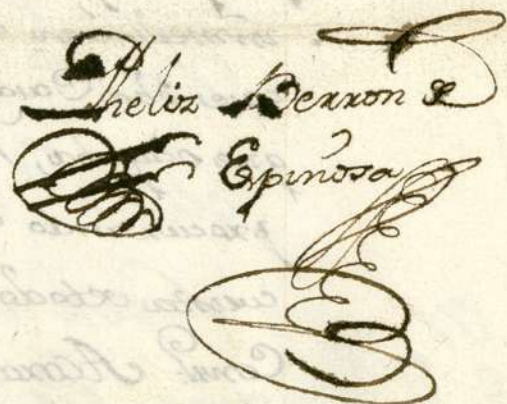 Pheliz Berron de
Espinosa